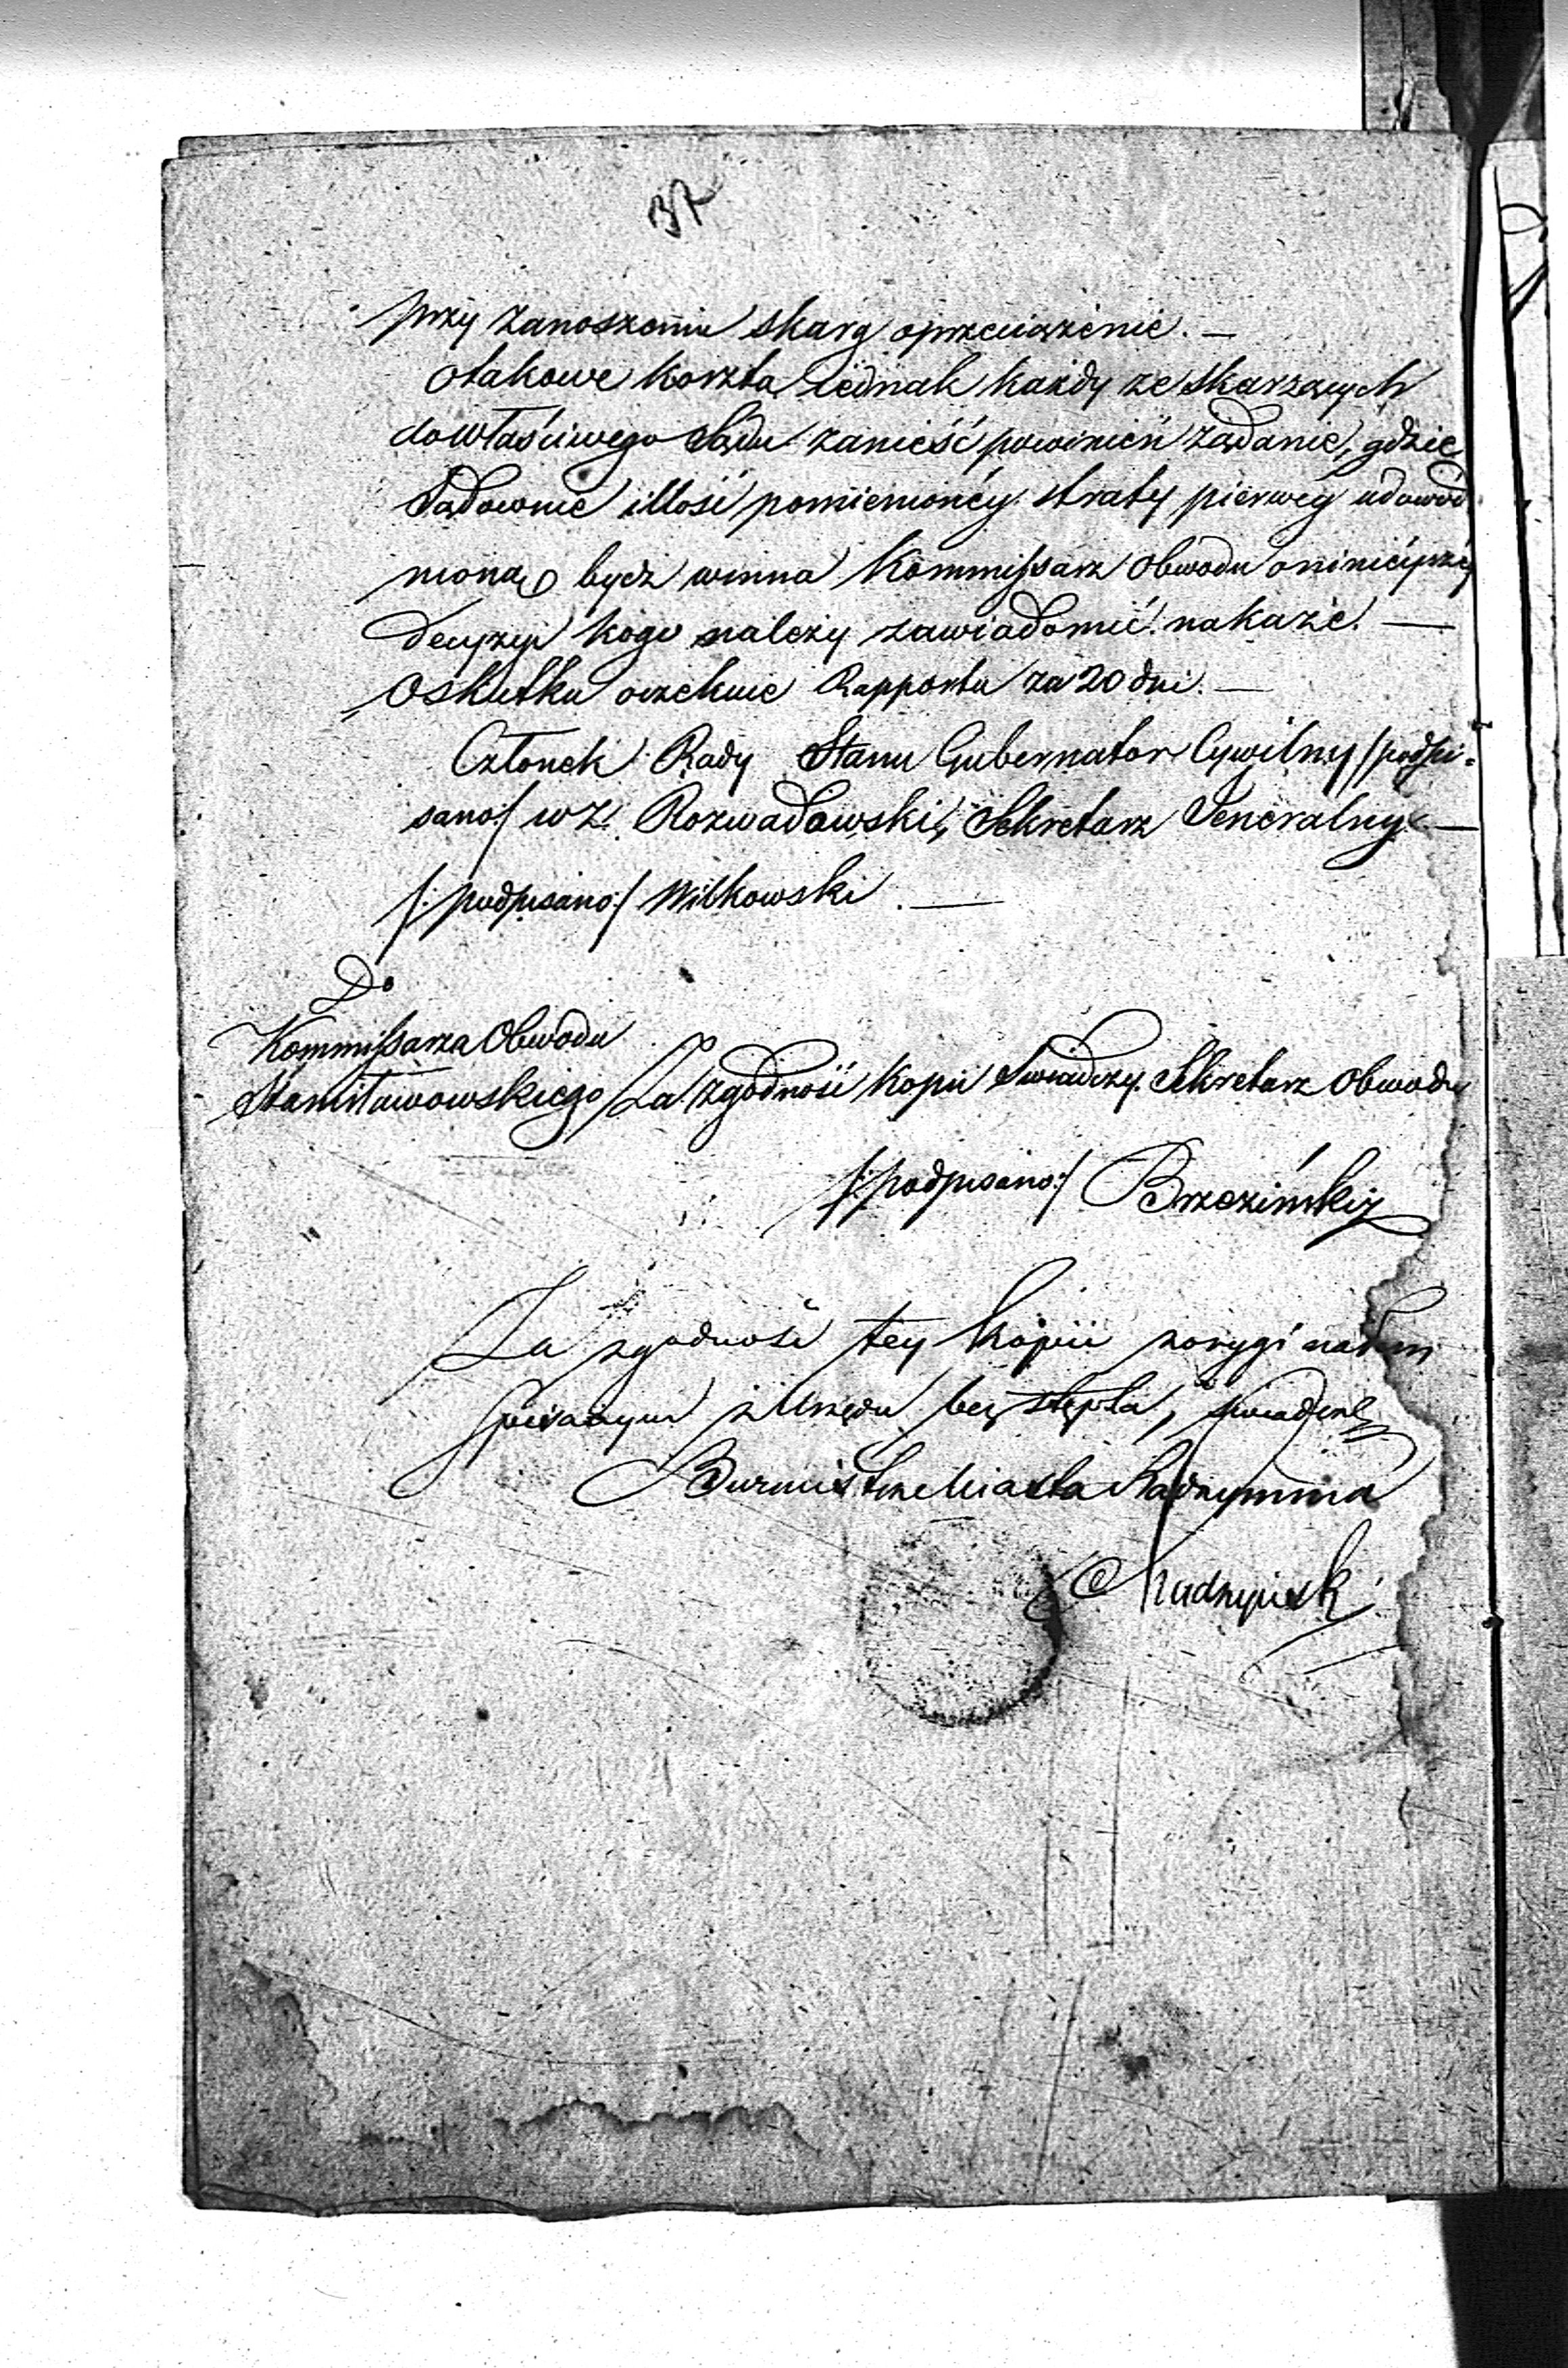 37
przy zanoszeniu skarg oprzeciążenie. —
otakowe koszta iednak każdy ze skarzących
dowłaściwego Sądu zanieść powinien żądanie, gdzie
Sądownie illość pomienionéy straty pierwéy udowod
nioną bydz winna Kommissarz Obwodu oninieyszéy
decyzyi kogo należy zawiadomić nakaże. —
Oskutku oczekuie Rapportu za 20 dni. —
Członek Rady Stanu Gubernator Cywilny /podpi-
sano/ w z. Rozwadowski, Sekretarz Jeneralny —
/:podpisano:/ Witkowski. —
Do
Kommissarza Obwodu
Stanisławowskiego
Za zgodność Kopii Świadczy Sekretarz Obwodu
/:podpisano:/ Brzeziński
Za zgodność tey kopii zorygi nałem
pisanym z Urzędu bez stępla, świadczę
Burmistrz Miasta Radzymina